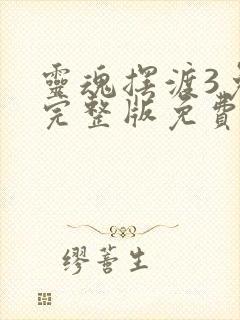 靈魂擺渡3
完整版免費
繆薈生